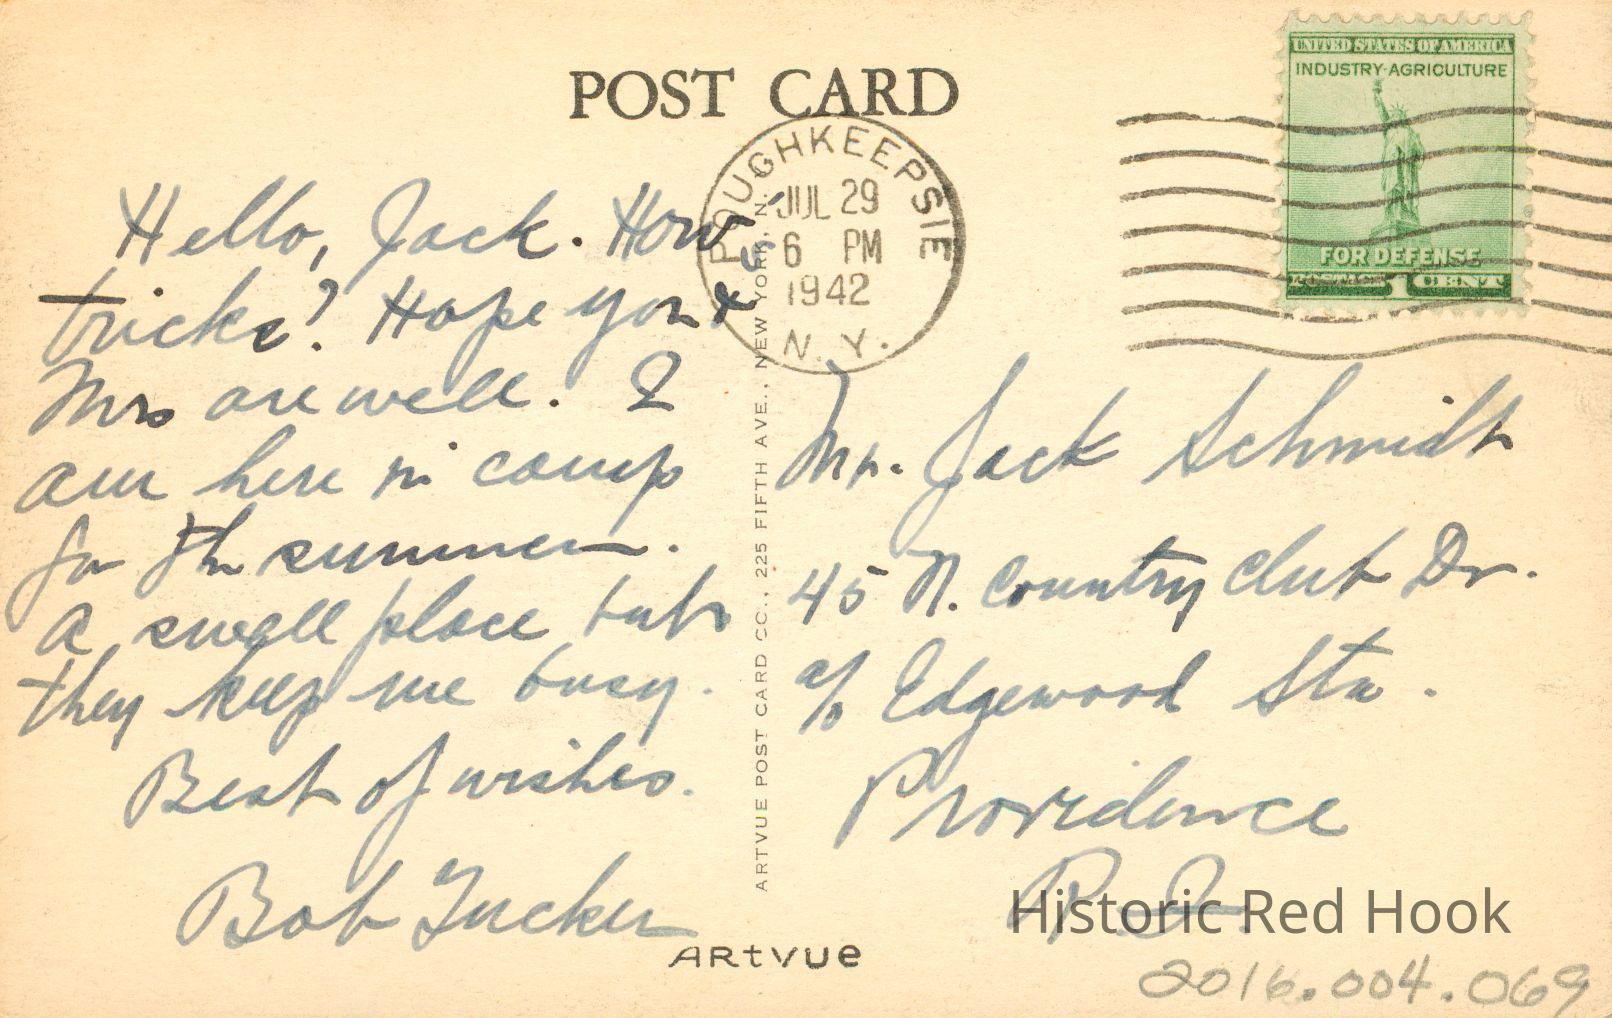 POST CARD
UNITED STATES OF AMERICA
INDUSTRY-AGRICULTURE
FOR DEFENSE
POSTAGE 1 CENT
POUGHKEEPSIE
JUL 29
6 PM
1942
N. Y.
Hello, Jack. How's
tricks? Hope you &
Mrs are well. I
am here in camp
for the summer.
A swell place but
they keep me busy.
Best of wishes.
Bob Tucker
ARTVUE POST CARD CO., 225 FIFTH AVE., NEW YORK, N. Y.
Mr. Jack Schmidt
45 N. Country Club Dr.
c/o Edgewood Sta.
Providence
R. I.
ARtVUe
Historic Red Hook
2016.004.069